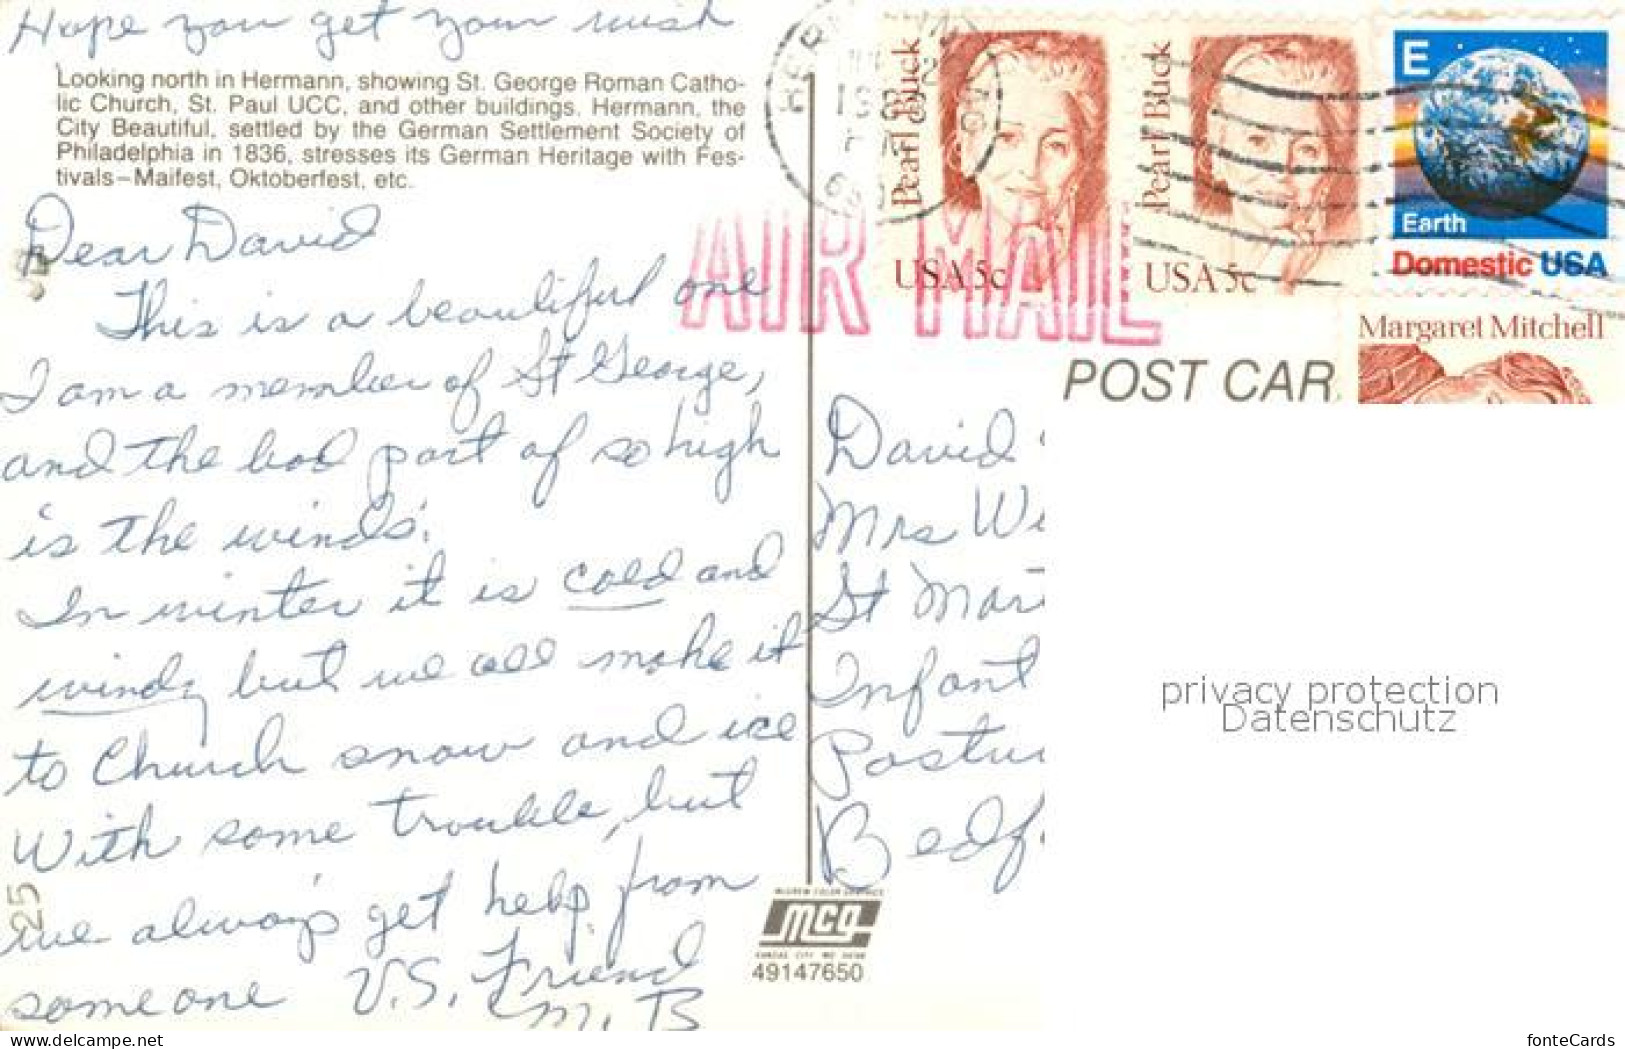 Hope you get your wish
Looking north in Hermann, showing St. George Roman Catho-
lic Church, St. Paul UCC, and other buildings. Hermann, the
City Beautiful, settled by the German Settlement Society of
Philadelphia in 1836, stresses its German Heritage with Fes-
tivals—Maifest, Oktoberfest, etc.
Dear David
This is a beautiful one
I am a member of St George,
and the bad part of so high
is the winds.
In winter it is cold and
windy but we all make it
to Church snow and ice
With some trouble, but
we always get help from
someone U.S. Friend
M. B
25
Pearl Buck
USA 5c
Pearl Buck
USA 5c
E
Earth
Domestic USA
Margaret Mitchell
AIR MAIL
POST CAR
David
Mrs Wi
St Mar
Infant
Postu
Bedf
privacy protection
Datenschutz
mcg
49147650
www.delcampe.net
fonteCards